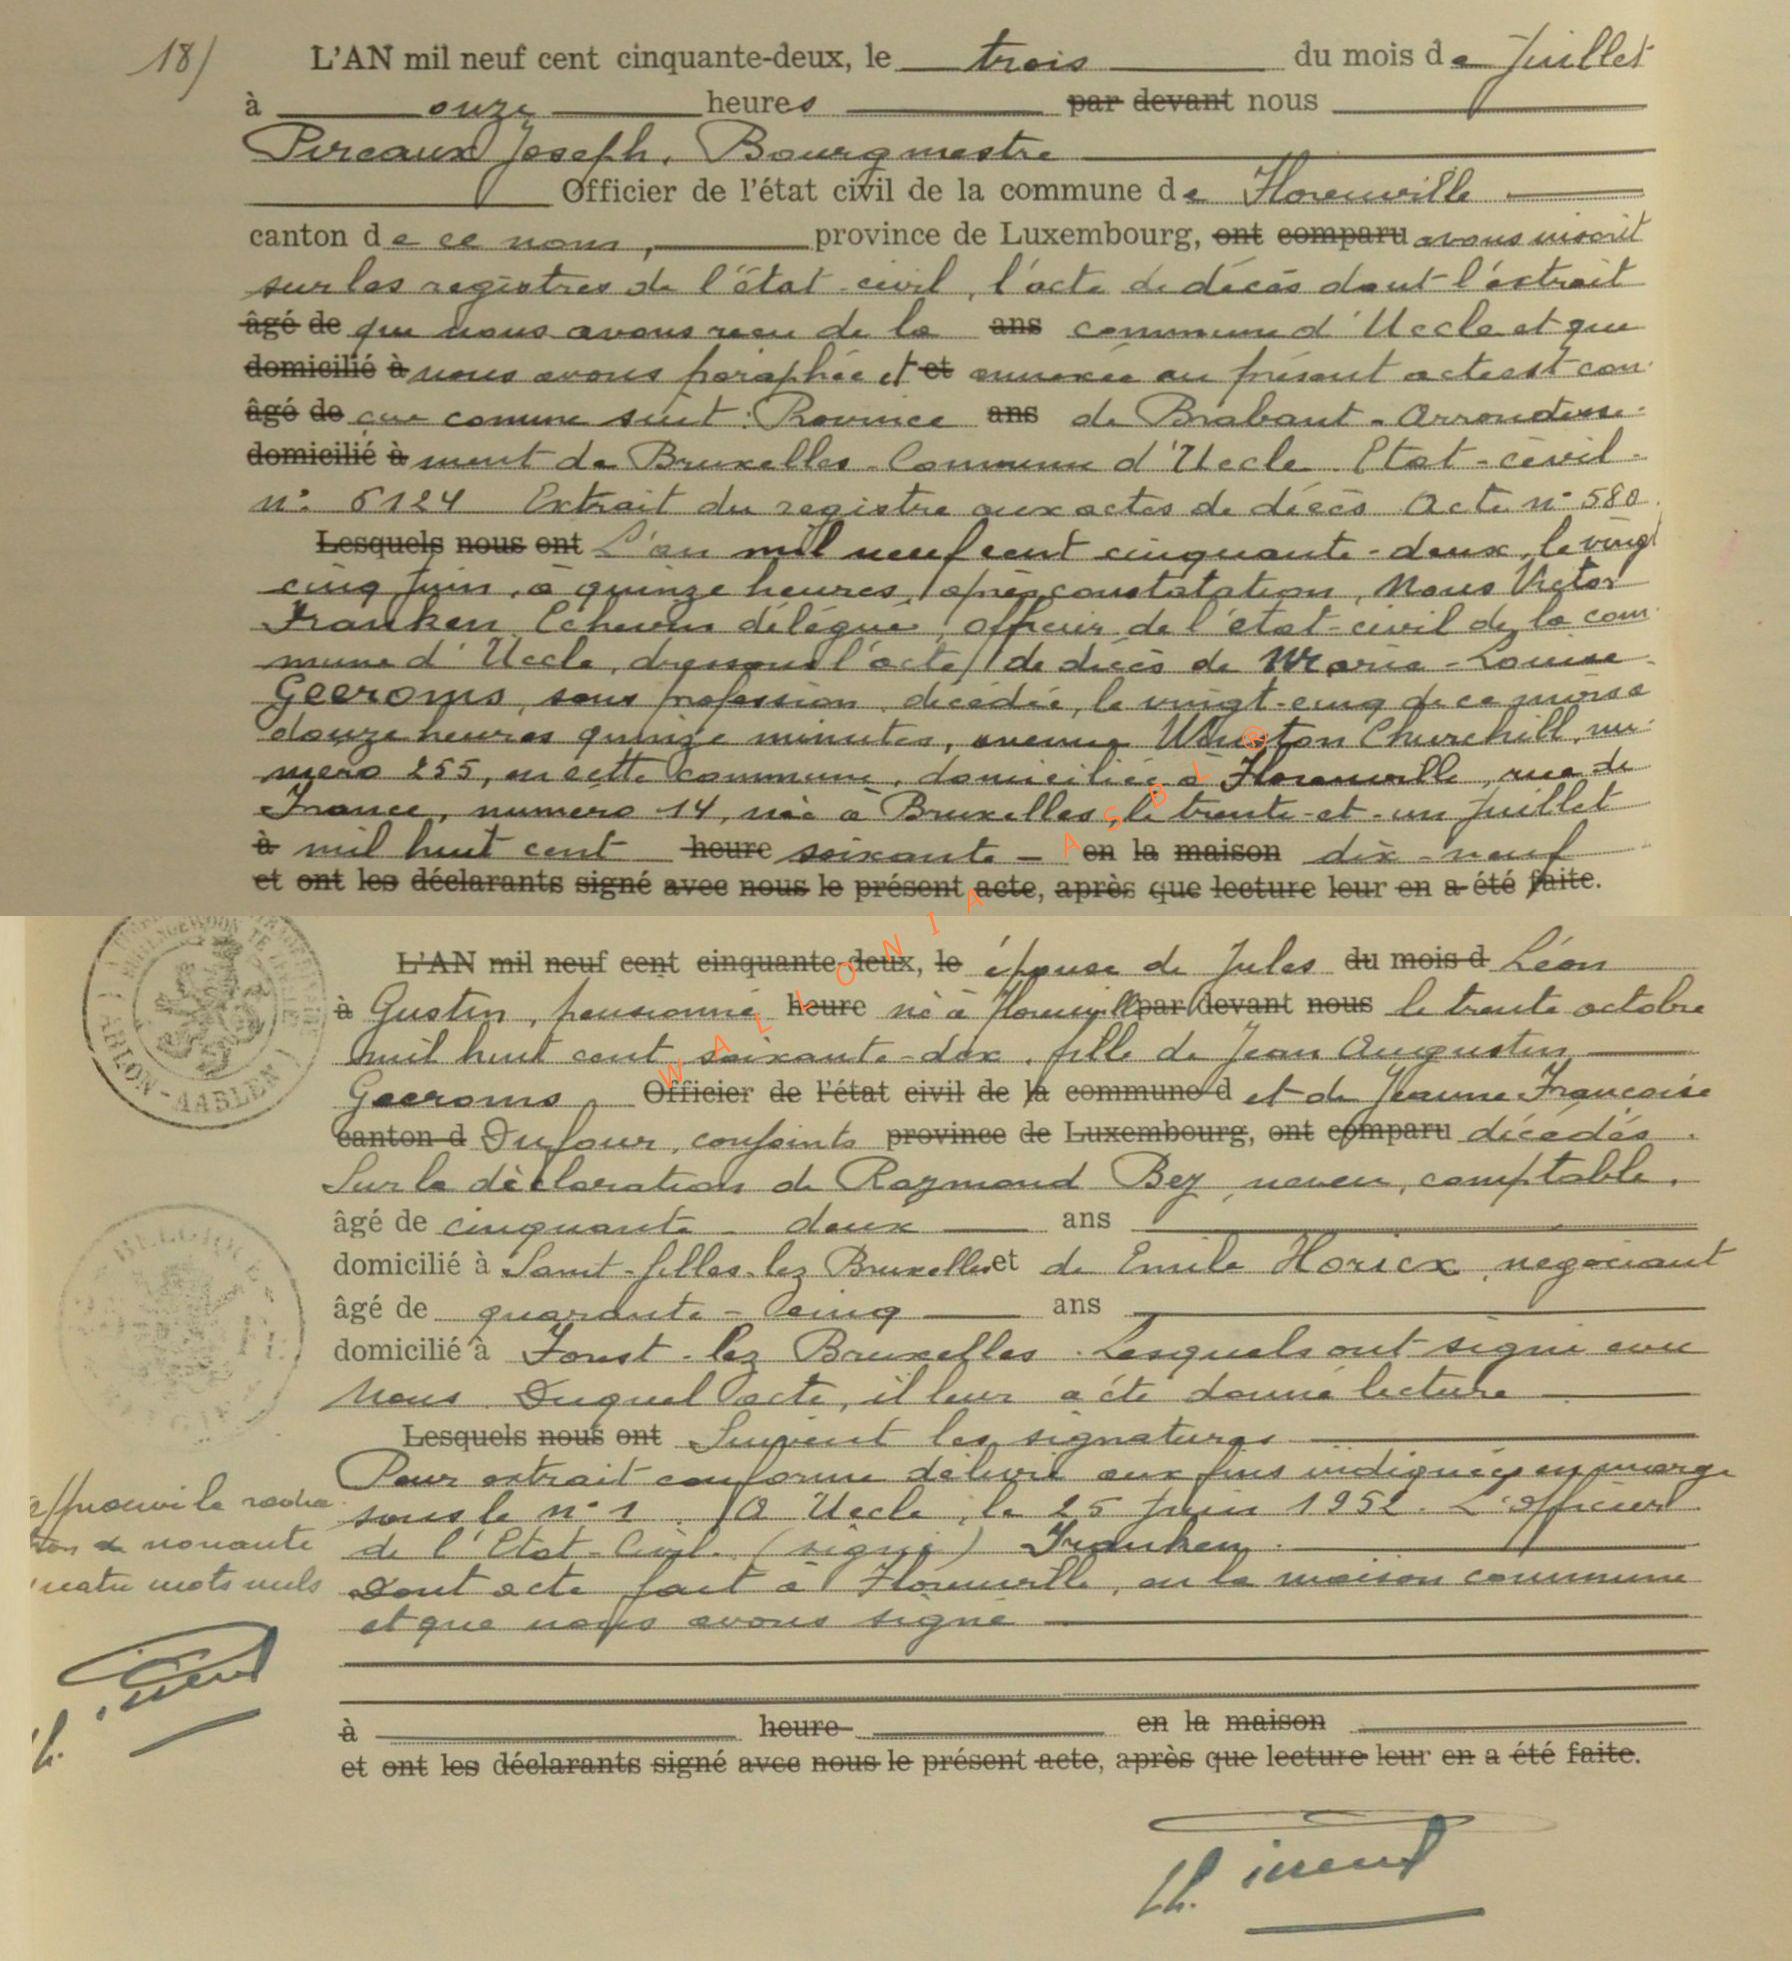 18/ L'AN mil neuf cent cinquante-deux, le trois du mois de Juillet
à onze heures par devant nous
Pireaux Joseph, Bourgmestre
Officier de l'état civil de la commune de Florenville
canton de ce nom, province de Luxembourg, ont comparu avons inscrit
sur les registres de l'état-civil, l'acte de décès dont l'extrait
âgé de que nous avons reçu de la ans commune d'Uccle et que
domicilié à nous avons paraphée et et annexée au présent acte est con
âgé de çue comme suit : Province ans de Brabant - Arrondisse-
domicilié à ment de Bruxelles - Commune d'Uccle - Etat-civil -
n° 6124 Extrait du registre aux actes de décès Acte n° 580.
Lesquels nous ont L'an mil neuf cent cinquante-deux, le vingt
cinq juin, à quinze heures, après constatation, Nous Victor
Franken Echevin délégué, officier de l'état-civil de la com
mune d'Uccle, dressons l'acte de décès de Marie-Louise
Geeroms, sans profession, décédée, le vingt-cinq de ce mois à
douze heures quinze minutes, avenue Winston Churchill, nu-
méro 255, en cette commune, domiciliée à Florenville, rue de
France, numéro 14, née à Bruxelles, le trente-et-un juillet
à mil huit cent heure soixante - en la maison dix-neuf
et ont les déclarants signé avec nous le présent acte, après que lecture leur en a été faite.
L'AN mil neuf cent cinquante-deux, le épouse de Jules du mois d Léon
à Gustin, pensionné heure né à Florenville par devant nous le trente octobre
mil huit cent soixante-dix, fille de Jean Augustin
Geeroms, Officier de l'état civil de la commune d et de Jeanne Françoise
canton d Dufour, conjoints province de Luxembourg, ont comparu décédés.
Sur la déclaration de Raymond Bey, neveu, comptable,
âgé de cinquante-deux ans
domicilié à Saint-Gilles-lez Bruxelles et de Emile Horicx, négociant
âgé de quarante-cinq ans
domicilié à Forest-lez Bruxelles. Lesquels ont signé avec
Nous. Duquel acte, il leur a été donné lecture
Lesquels nous ont Suivent les signatures
Pour extrait conforme délivré aux fins indiquées en marge
sous le n° 1. A Uccle, le 25 juin 1952. L'officier
de l'Etat-Civil. (signé) Franken.
Dont acte fait à Florenville, en la maison commune
et que nous avons signé
à heure en la maison
et ont les déclarants signé avec nous le présent acte, après que lecture leur en a été faite.
nonante
quatre mots nuls
ARLON-AARLEN
BELGIQUE
WALLONIA ASBL ®